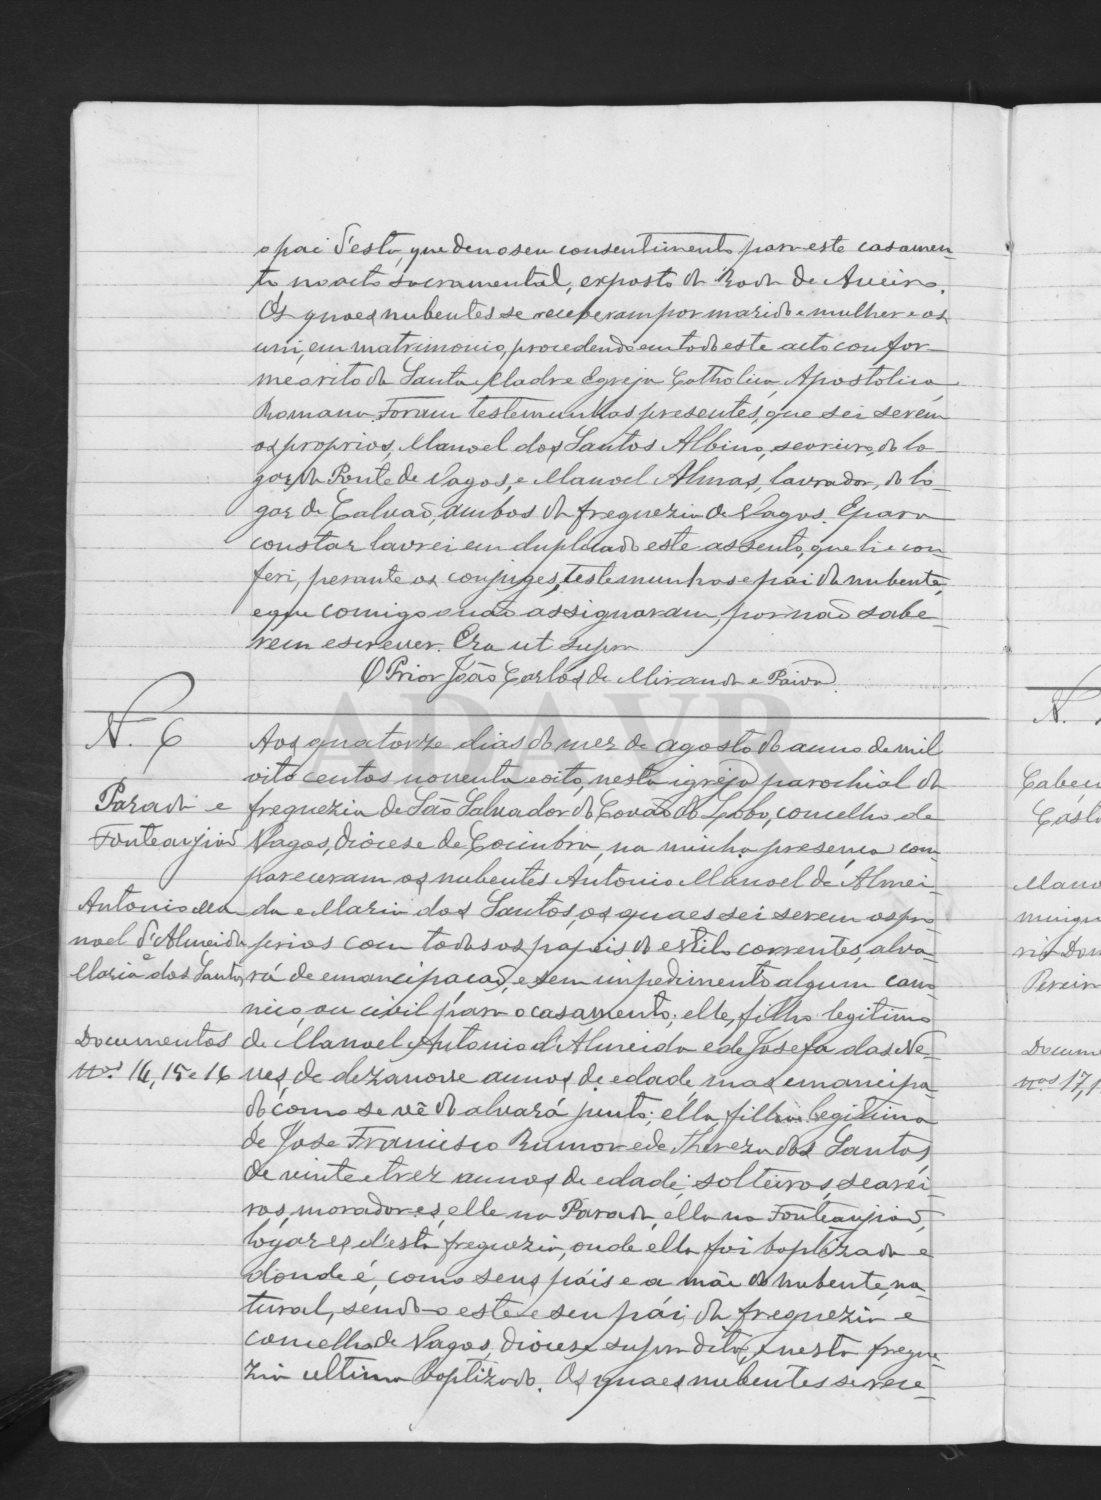 o pai d'esta, que deu o seu consentimento para este casamen-
to, no acto sacramental, exposto da Roda de Aveiro.
Os quaes nubentes se receberam por marido e mulher e os
uni, em matrimonio, procedendo em todo este acto confor-
me o rito da Santa Madre Egreja Catholica, Apostolica
Romana. Foram testemunhas presentes, que sei serem
os proprios, Manoel dos Santos Albino, seareiro, do lo-
gar da Ponte de Vagos, e Manoel Almas, lavrador, do lo-
gar de Calvaõ, ambos da freguezia de Vagos. E para
constar lavrei em duplicado este assento, que li e con-
feri, perante os conjuges, testemunhas e pai da nubente,
e que comigo não assignaram, por naõ sabe-
rem escrever. Era ut supra
O Prior João Carlos de Miranda e Paiva.
ADAVR
N. 6
Parada e
Fonteanjiaõ
Antonio Ma
noel d'Almeida
e
Maria dos Santos
Documentos
nos. 14, 15 e 16
Aos quatorze dias do mez de agosto do anno de mil
oito centos noventa e oito, nesta igreja parochial da
freguezia de São Salvador da Covaõ do Lobo, concelho de
Vagos, diocese de Coimbra, na minha presença com-
pareceram os nubentes Antonio Manoel de Almei-
da e Maria dos Santos, os quaes sei serem os pro-
prios com todos os papeis do estilo correntes, alva-
rá de emancipacaõ, e sem impedimento algum cano-
nico, ou civil para o casamento; elle, filho legitimo
de Manoel Antonio d'Almeida e de Josefa das Ne-
ves, de dezanove annos de edade, mas emancipa-
do como se vê do alvará junto; ella filha legitima
de Jose Francisco Rumor e de Thereza dos Santos,
de vinte e trez annos de edade; solteiros, searei-
ros, moradores, elle na Parada, ella na Fonteanjiaõ,
logares d'esta freguezia, onde ella foi baptizada e
donde é, como seus páis e a mãe do nubente, na-
tural, sendo-o este e seu pái, da freguezia e
concelho de Vagos, diocese supra dita, e nesta fregue-
zia ultima baptizado. Os quaes nubentes se rece-
N.
Documen
nos 17, 1